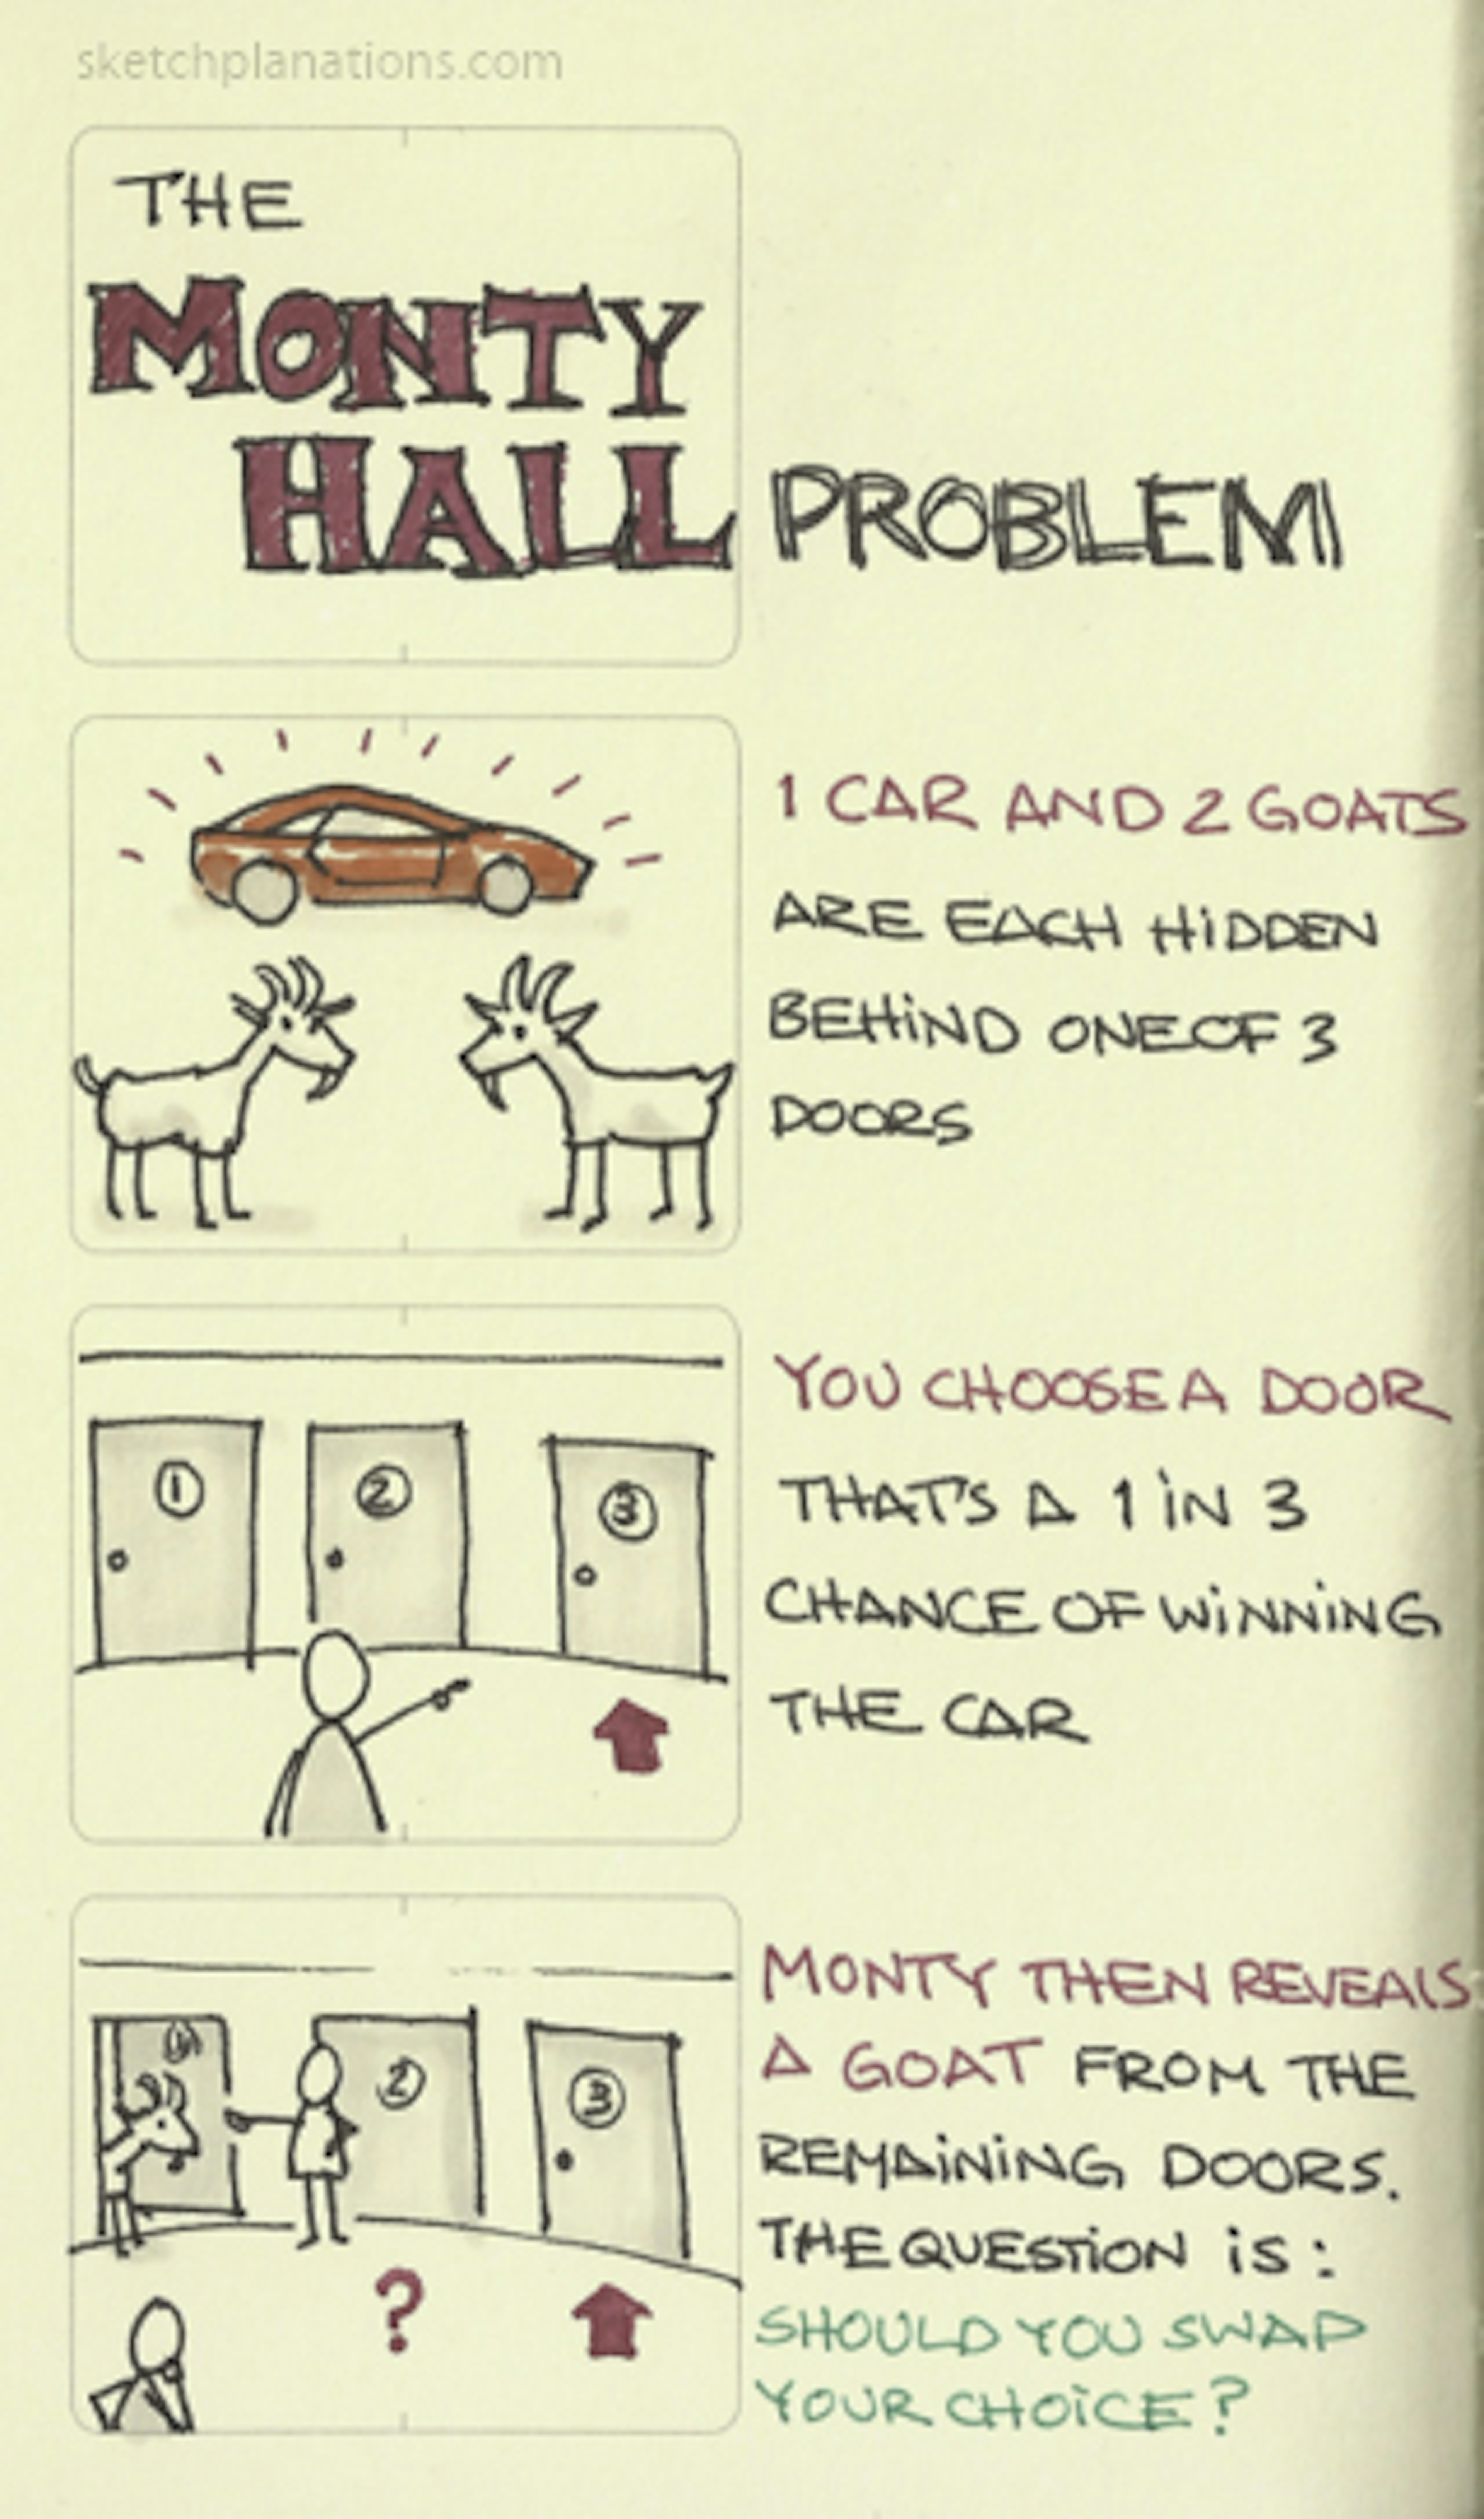 sketchplanations.com
THE
MONTY
HALL PROBLEM
1 CAR AND 2 GOATS
ARE EACH HIDDEN
BEHIND ONE OF 3
DOORS
1 2 3
YOU CHOOSE A DOOR
THAT'S A 1 IN 3
CHANCE OF WINNING
THE CAR
1 2 3
?
MONTY THEN REVEALS
A GOAT FROM THE
REMAINING DOORS.
THE QUESTION IS:
SHOULD YOU SWAP
YOUR CHOICE?